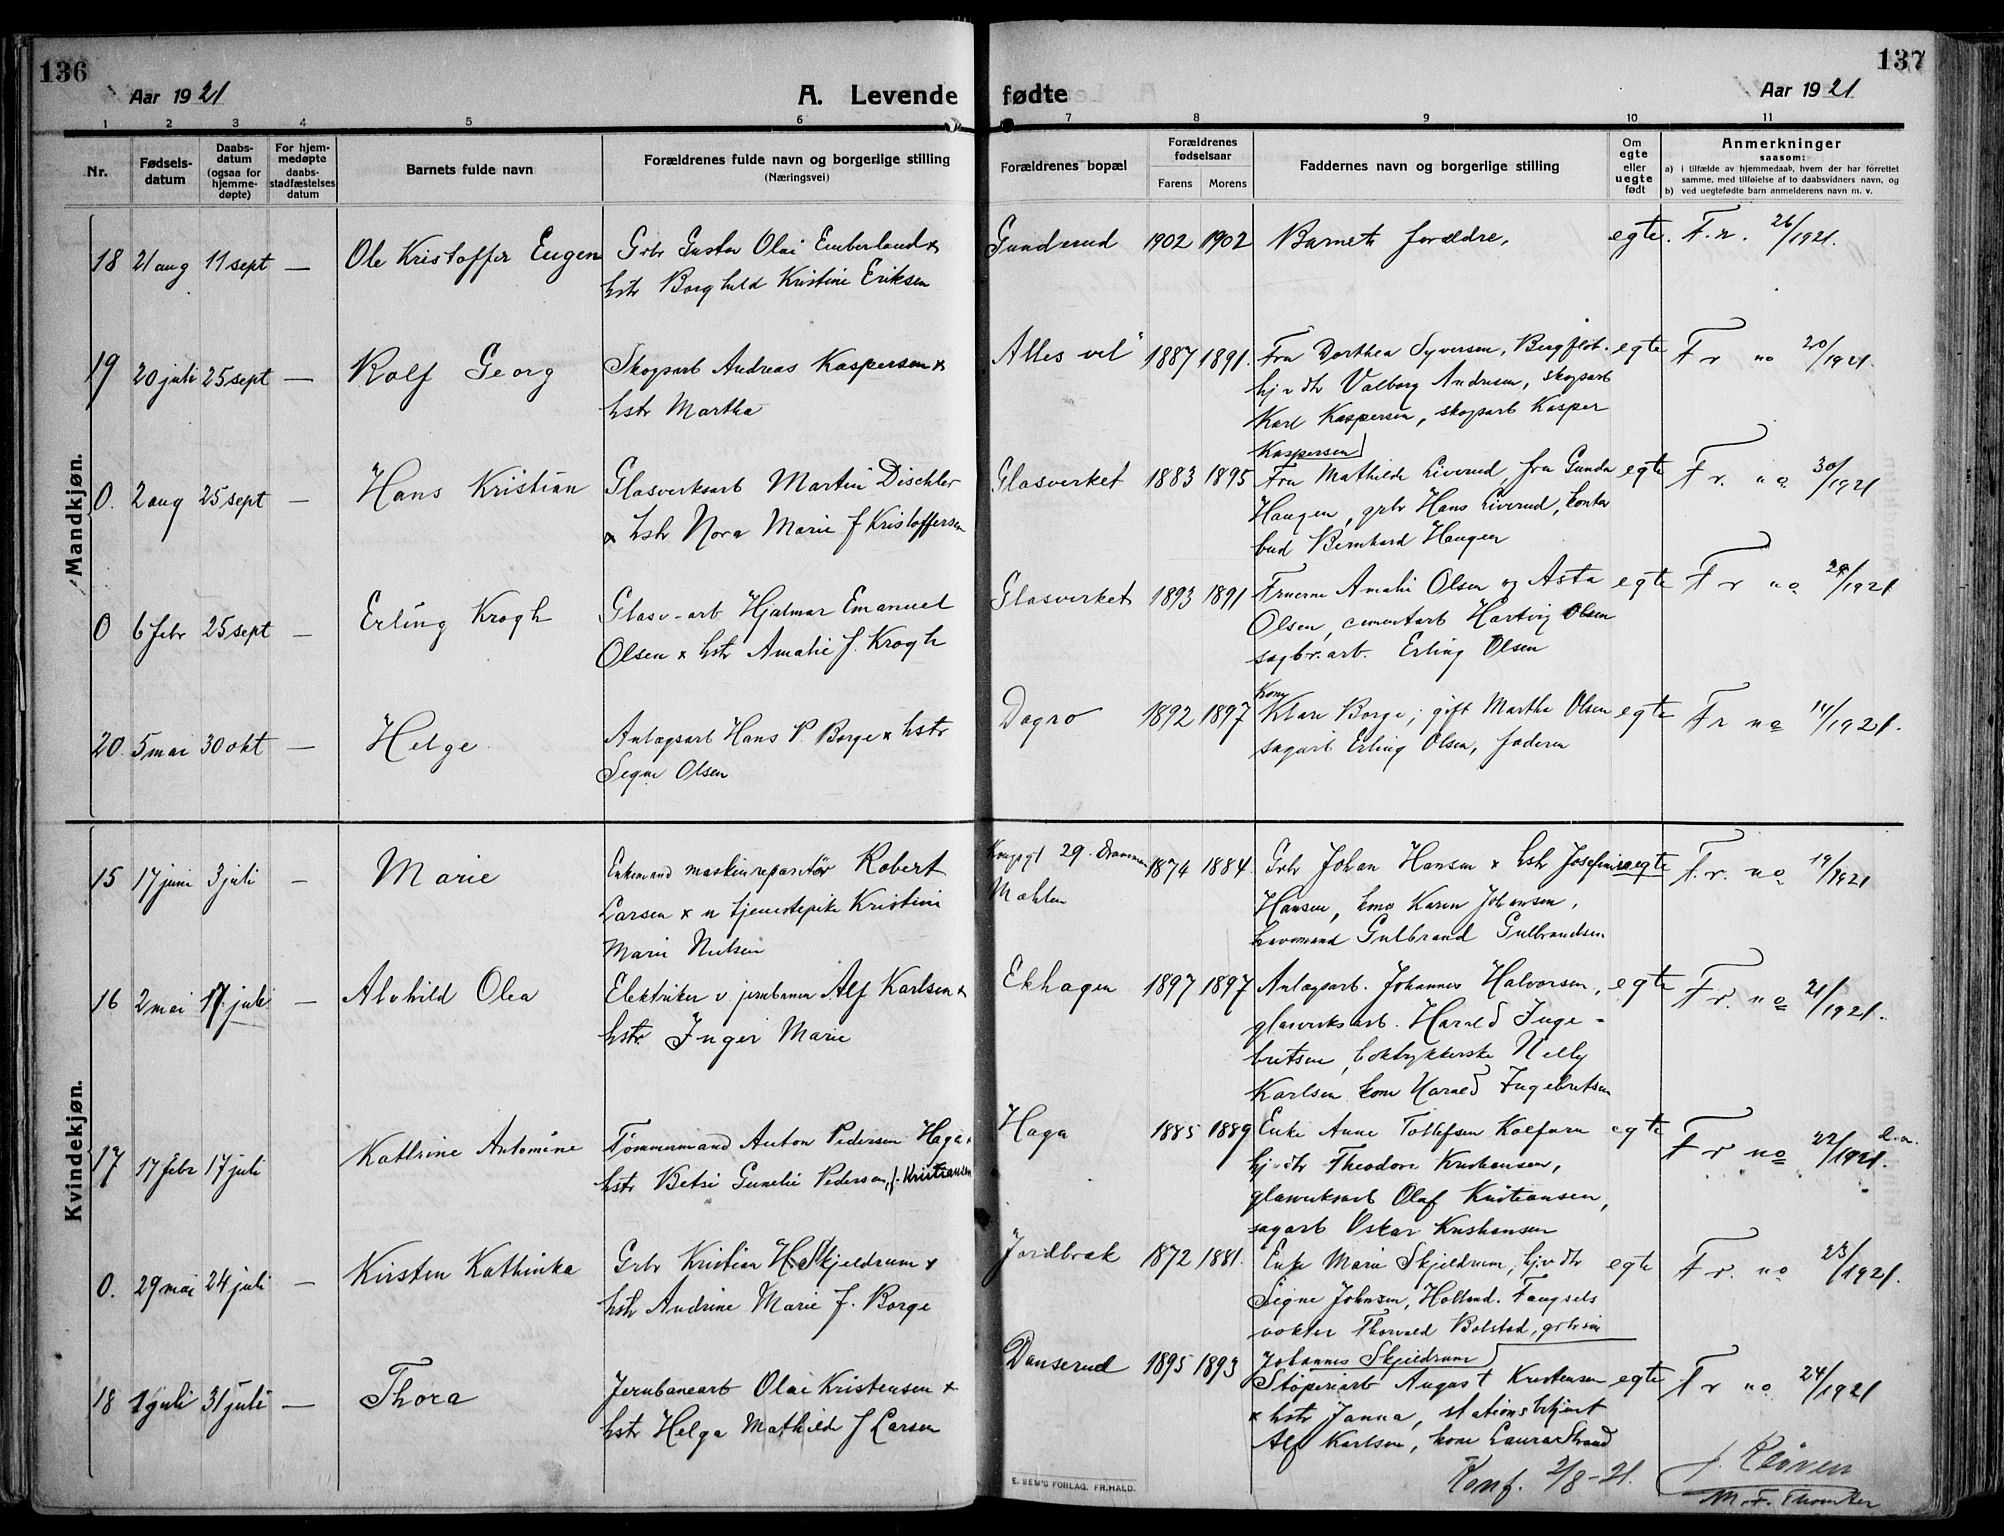 136
Aar 1921
A. Levende
fødte
137
Aar 1921
1 2 3 4 5 6 7 8 9 10 11
Nr.
Fødsels-
datum
Daabs-
datum
(ogsaa for
hjemme-
døpte)
For hjem-
medøpte
daabs-
stadfæstelses
datum
Barnets fulde navn
Forældrenes fulde navn og borgerlige stilling
(Næringsvei)
Forældrenes bopæl
Forældrenes
fødselsaar
Farens Morens
Faddernes navn og borgerlige stilling
Om
egte
eller
uegte
født
Anmerkninger
saasom:
a) i tilfælde av hjemmedaab, hvem der har forrettet
samme, med tilføielse af to daabsvidners navn, og
b) ved uegtefødte barn anmelderens navn m. v.
Mandkjøn.
18 21 aug 11 sept — Ole Kristoffer Eugen
Grbr Gustav Olai Emberland x
hstr Borghild Kristine Eriksen
Gunderud 1902 1902
Barnets forældre,
egte. F. r. 26/1921.
19 20 juli 25 sept — Rolf Georg
Skogsarb Andreas Kaspersen x
hstr Martha
Alles vel 1887 1891.
Fru Dorthea Syversen, Bergflot.
hjvdtr Valborg Andresen, skogsarb
Karl Kaspersen, skogsarb Kasper
Kaspersen
egte Fr no 20/1921.
0. 2 aug 25 sept — Hans Kristian
Glasverksarb Martin Dischler
x hstr Nora Marie f Kristoffersen
Glasverket 1883 1895
Fru Mathilde Liverud, fru Gunda
Haugen, grbr Hans Liverud, kontor
bud Bernhard Haugen
egte Fr. no 30/1921
0 6 febr 25 sept — Erling Krogh
Glasv-arb Hjalmar Emanuel
Olsen x hstr Amalie f. Krogh
Glasverket 1893 1891
Fruerne Amalie Olsen og Asta
Olsen, cementarb Hartvig Olsen
sagbr.arb. Erling Olsen
egte Fr no 29/1921
20. 5 mai 30 okt — Helge
Anlægsarb Hans P. Borge x hstr
Signe Olsen
Dogro 1892 1897
Kone
Klara Borge, gift Martha Olsen
sagarb Erling Olsen, faderen
egte Fr no 14/1921.
Kvindekjøn.
15 17 juni 3 juli — Marie
Enkemand maskinreparatør Robert
Larsen x u tjenestepike Kristine
Marie Nielsen
Kongsgt 29. Drammen
Mohlen
1874 1884.
Grbr Johan Hansen x hstr Josefine
Hansen, kone Karen Johansen,
Gulbrand Gulbrandsen
uegte F. r. no 19/1921
16 2 mai 17. juli — Alvhild Olea
Elektriker v. jernbanen Alf Karlsen x
hstr. Inger Marie
Ekhagen 1897 1897
Anlægsarb. Johannes Halvorsen,
glasverksarb. Harald Inge-
bretsen, boktrykkerske Nelly
Karlsen kone Harald Ingebretsen
egte Fr. no 21/1921.
17 17 febr 17 juli Kathrine Antomine
Tømmermand Anton Pedersen Haga x
hstr Betsi Gunelie Pedersen, f. Kristiansen
Haga 1885 1889
Enke Anne Tollefsen Kolfarn
hjvdtr Theodora Kristiansen,
glasverksarb Olaf Kristiansen,
sagarb Oskar Kristiansen
egte Fr no 22/1921. d.a.
0. 29 mai 24 juli — Kirsten Kathinka
Grbr Kristian H. Skjeldrum x
hstr Andrine Marie f. Borge
Jordbræk 1872 1881.
Enke Marie Skjeldrum, hjvdtr
Signe Johnsen, Holland. Fængsels
vokter Thorvald Bolstad, grbrsøn
Johannes Skjeldrum
egte Fr. no 23/1921.
18 1 juli 31 juli — Thora
Jernbanearb Olai Kristensen x
hstr Helga Mathilde f Larsen
Danserud 1895 1893
Støperiarb August Kristensen
x hstr Janna, stationsbetjent
Alf Karlsen, kone Laura Strand
egte Fr no 24/1921
E. SEM'S FORLAG. FR.HALD.
Konf. 2/8-21.